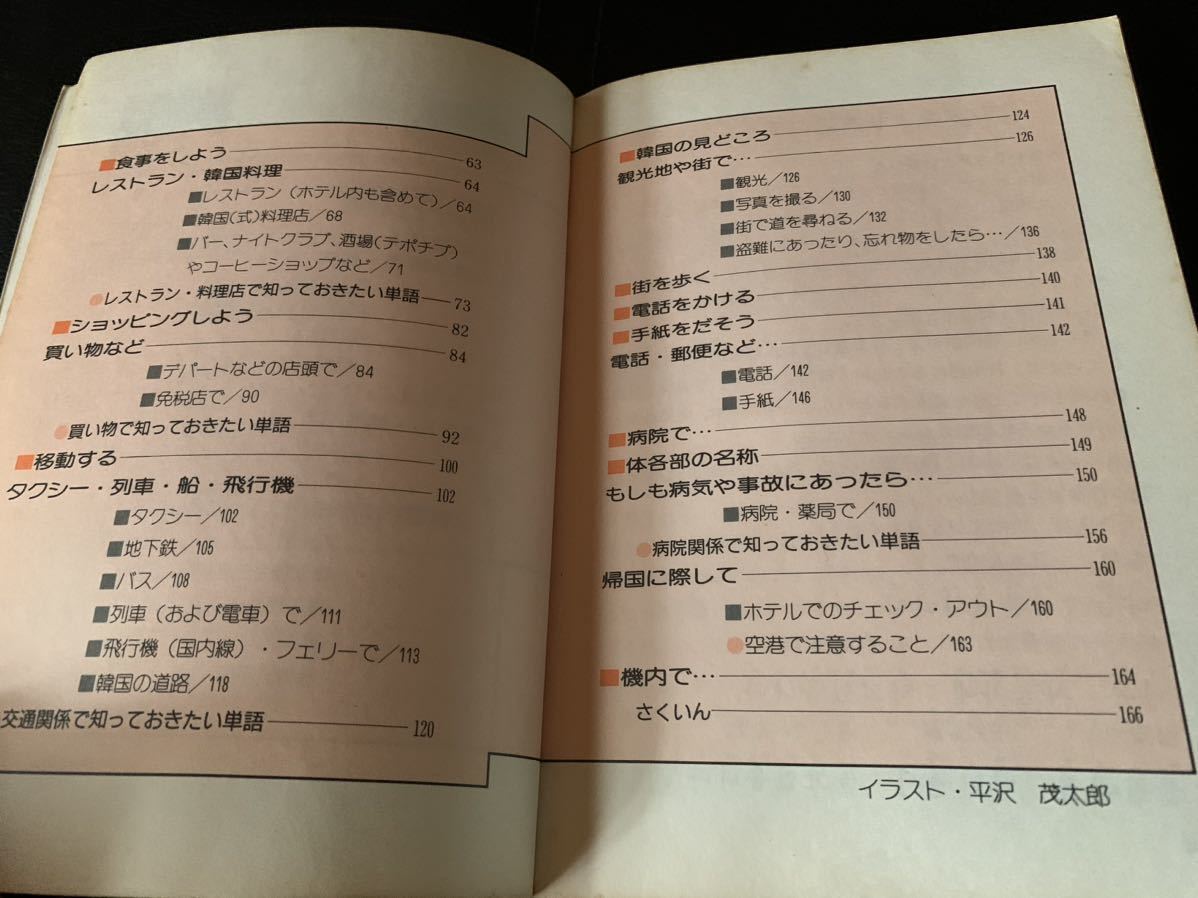 ■食事をしよう 63
レストラン・韓国料理 64
■レストラン(ホテル内も含めて)/64
■韓国(式)料理店/68
■バー、ナイトクラブ、酒場(テポチプ)
やコーヒーショップなど/71
●レストラン・料理店で知っておきたい単語 73
■ショッピングしよう 82
買い物など 84
■デパートなどの店頭で/84
■免税店で/90
●買い物で知っておきたい単語 92
■移動する 100
タクシー・列車・船・飛行機 102
■タクシー/102
■地下鉄/105
■バス/108
■列車(および電車)で/111
■飛行機(国内線)・フェリーで/113
■韓国の道路/118
交通関係で知っておきたい単語 120
■韓国の見どころ 124
観光地や街で… 126
■観光/126
■写真を撮る/130
■街で道を尋ねる/132
■盗難にあったり、忘れ物をしたら…/136
■街を歩く 138
■電話をかける 140
■手紙をだそう 141
電話・郵便など… 142
■電話/142
■手紙/146
■病院で… 148
■体各部の名称 149
もしも病気や事故にあったら… 150
■病院・薬局で/150
●病院関係で知っておきたい単語 156
帰国に際して 160
■ホテルでのチェック・アウト/160
●空港で注意すること/163
■機内で… 164
さくいん 166
イラスト・平沢 茂太郎